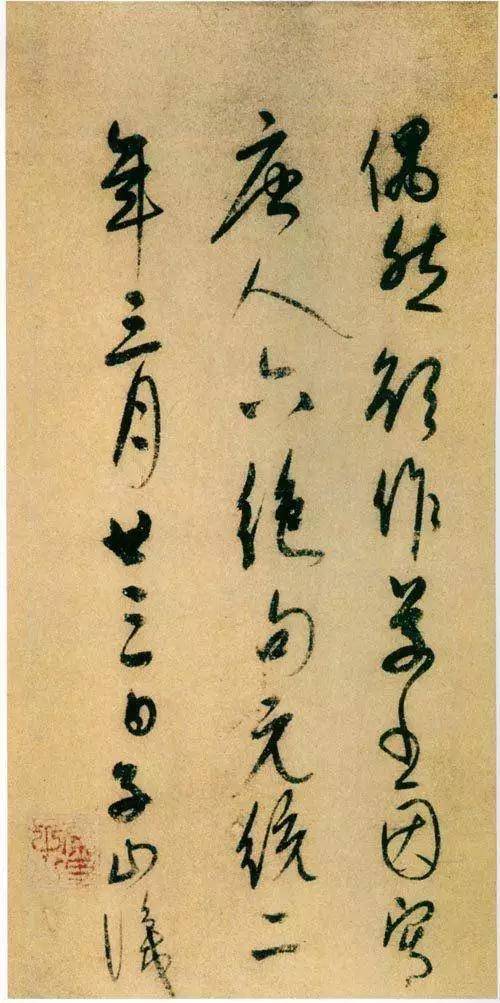 偶然欲作草书因写
唐人六绝句元统二
年三月廿三日子山识